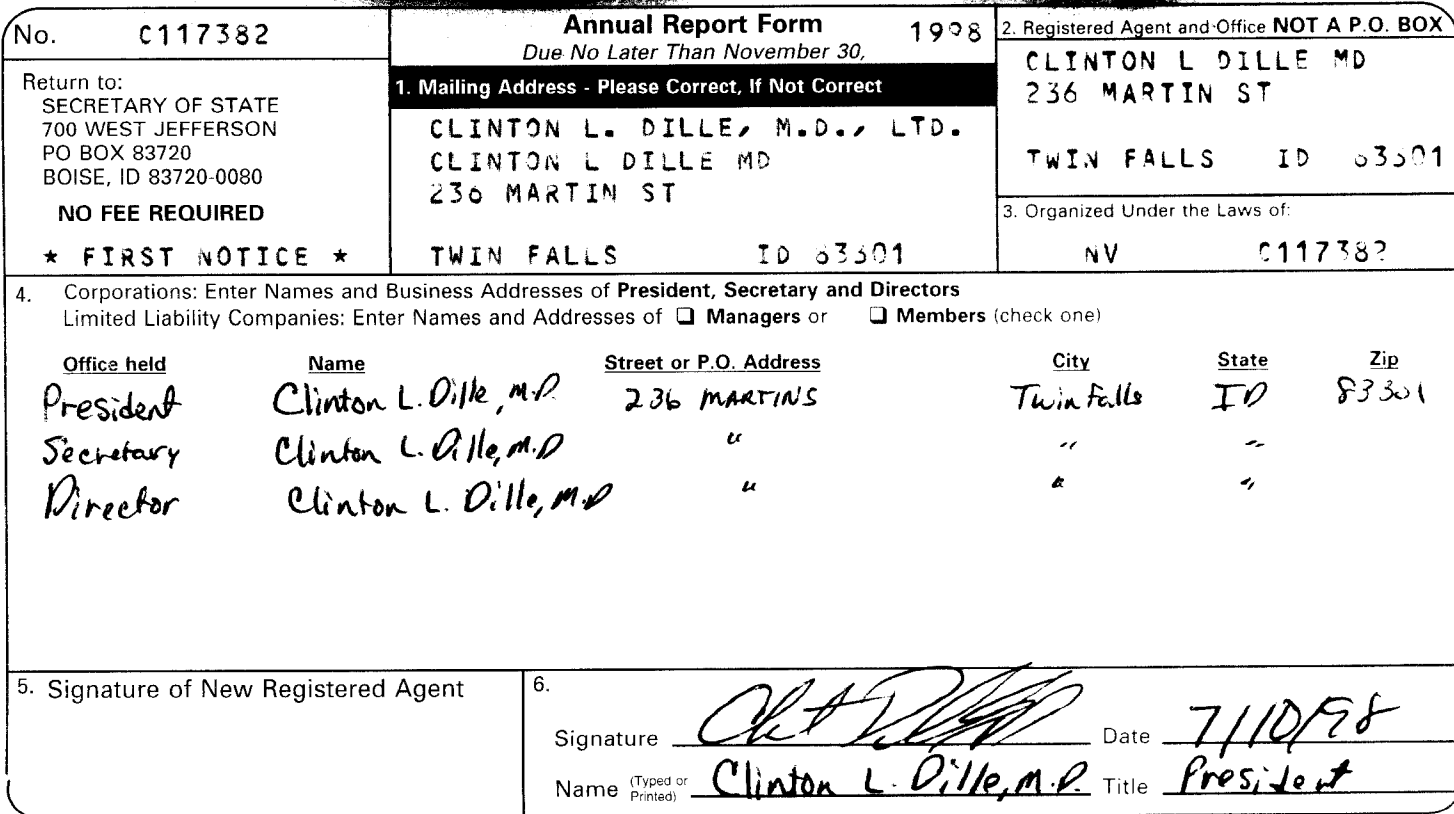 No. C117382
Return to:
SECRETARY OF STATE
700 WEST JEFFERSON
PO BOX 83720
BOISE, ID 83720-0080
NO FEE REQUIRED
* FIRST NOTICE *
Annual Report Form 1998
Due No Later Than November 30,
1. Mailing Address - Please Correct, If Not Correct
CLINTON L. DILLE, M.D., LTD.
CLINTON L DILLE MD
236 MARTIN ST
TWIN FALLS ID 83301
2. Registered Agent and Office NOT A P.O. BOX
CLINTON L DILLE MD
236 MARTIN ST
TWIN FALLS ID 83301
3. Organized Under the Laws of:
NV C117382
4. Corporations: Enter Names and Business Addresses of President, Secretary and Directors
Limited Liability Companies: Enter Names and Addresses of ❏ Managers or ❏ Members (check one)
Office held Name Street or P.O. Address City State Zip
President Clinton L. Dille, M.D. 236 MARTINS Twin Falls ID 83301
Secretary Clinton L. Dille, M.D " " "
Director Clinton L. Dille, M.D " " "
5. Signature of New Registered Agent
6.
Signature Date 7/10/98
Name (Typed or Printed) Clinton L. Dille, M.D. Title President